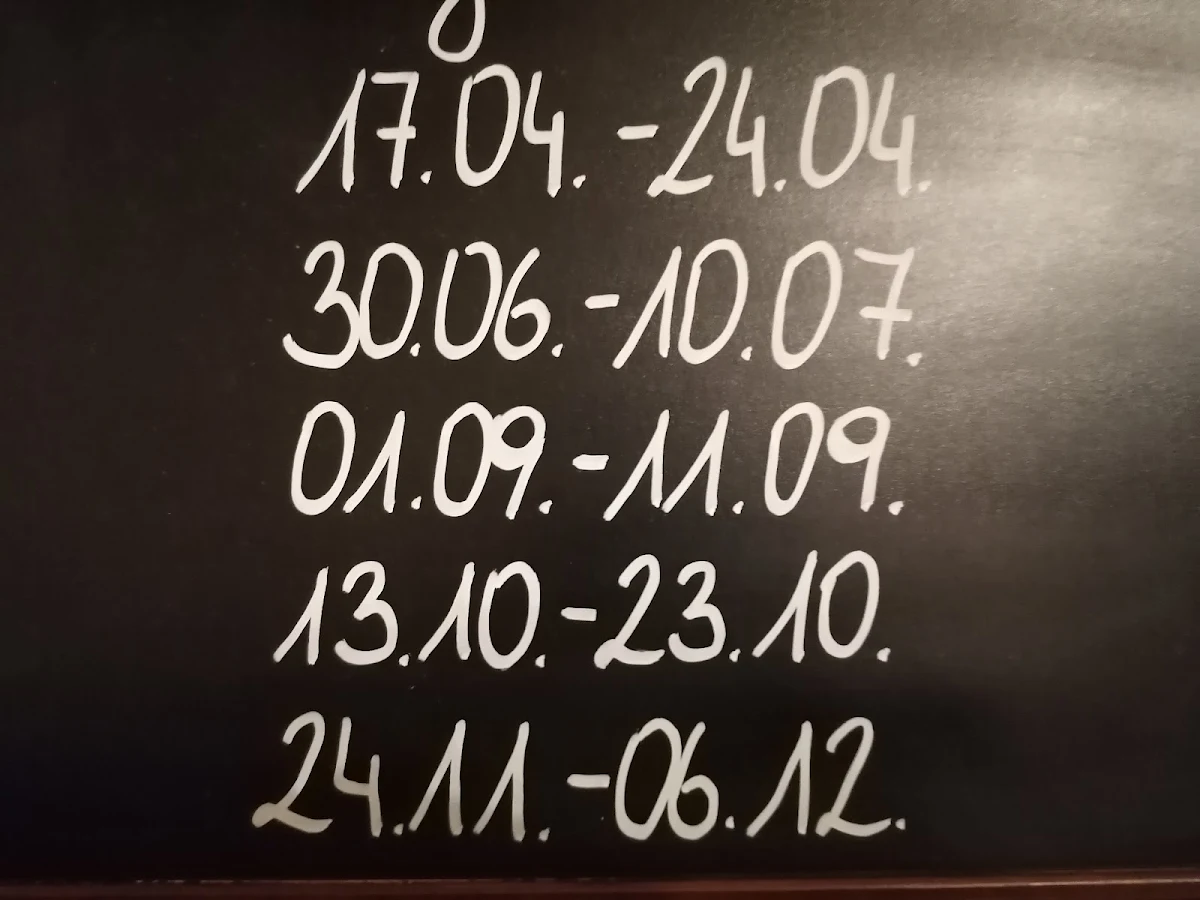 17.04. - 24.04.
30.06. - 10.07.
01.09. - 11.09.
13.10. - 23.10.
24.11. - 06.12.